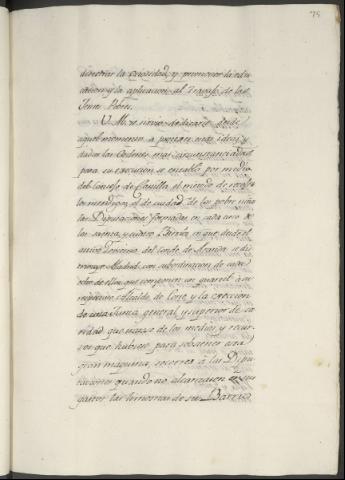 75
desterrar la ociosidad, y promover la edu-
cacion y la aplicacion al Trabajo de las
Jentes Pobres.
V. M. se sirvio dedicarse desde
aquel momento a proteger estas ideas, y
dadas las ordenes mas circunstanciadas
para su execucion se entabló por medio
del Consejo de Castilla el metodo de recoger
los mendigos, el de cuidar de los pobres
las Diputaciones formadas en cada uno de
los sesenta, y quatro Barrios, en que desde el
antiguo del Conde de Aranda se dis-
tribuyó Madrid con subordinacion de cada
ocho de ellos que componen un quartel á su
respectivo Alcalde de Corte, y la ereccion
de una Junta general y superior de ca-
ridad que trazase de los medios, y recur-
sos que hubiese para sostener una
gran maquina, socorrer á las Dipu-
taciones quando no alcanzasen
las limosnas de sus Barrios